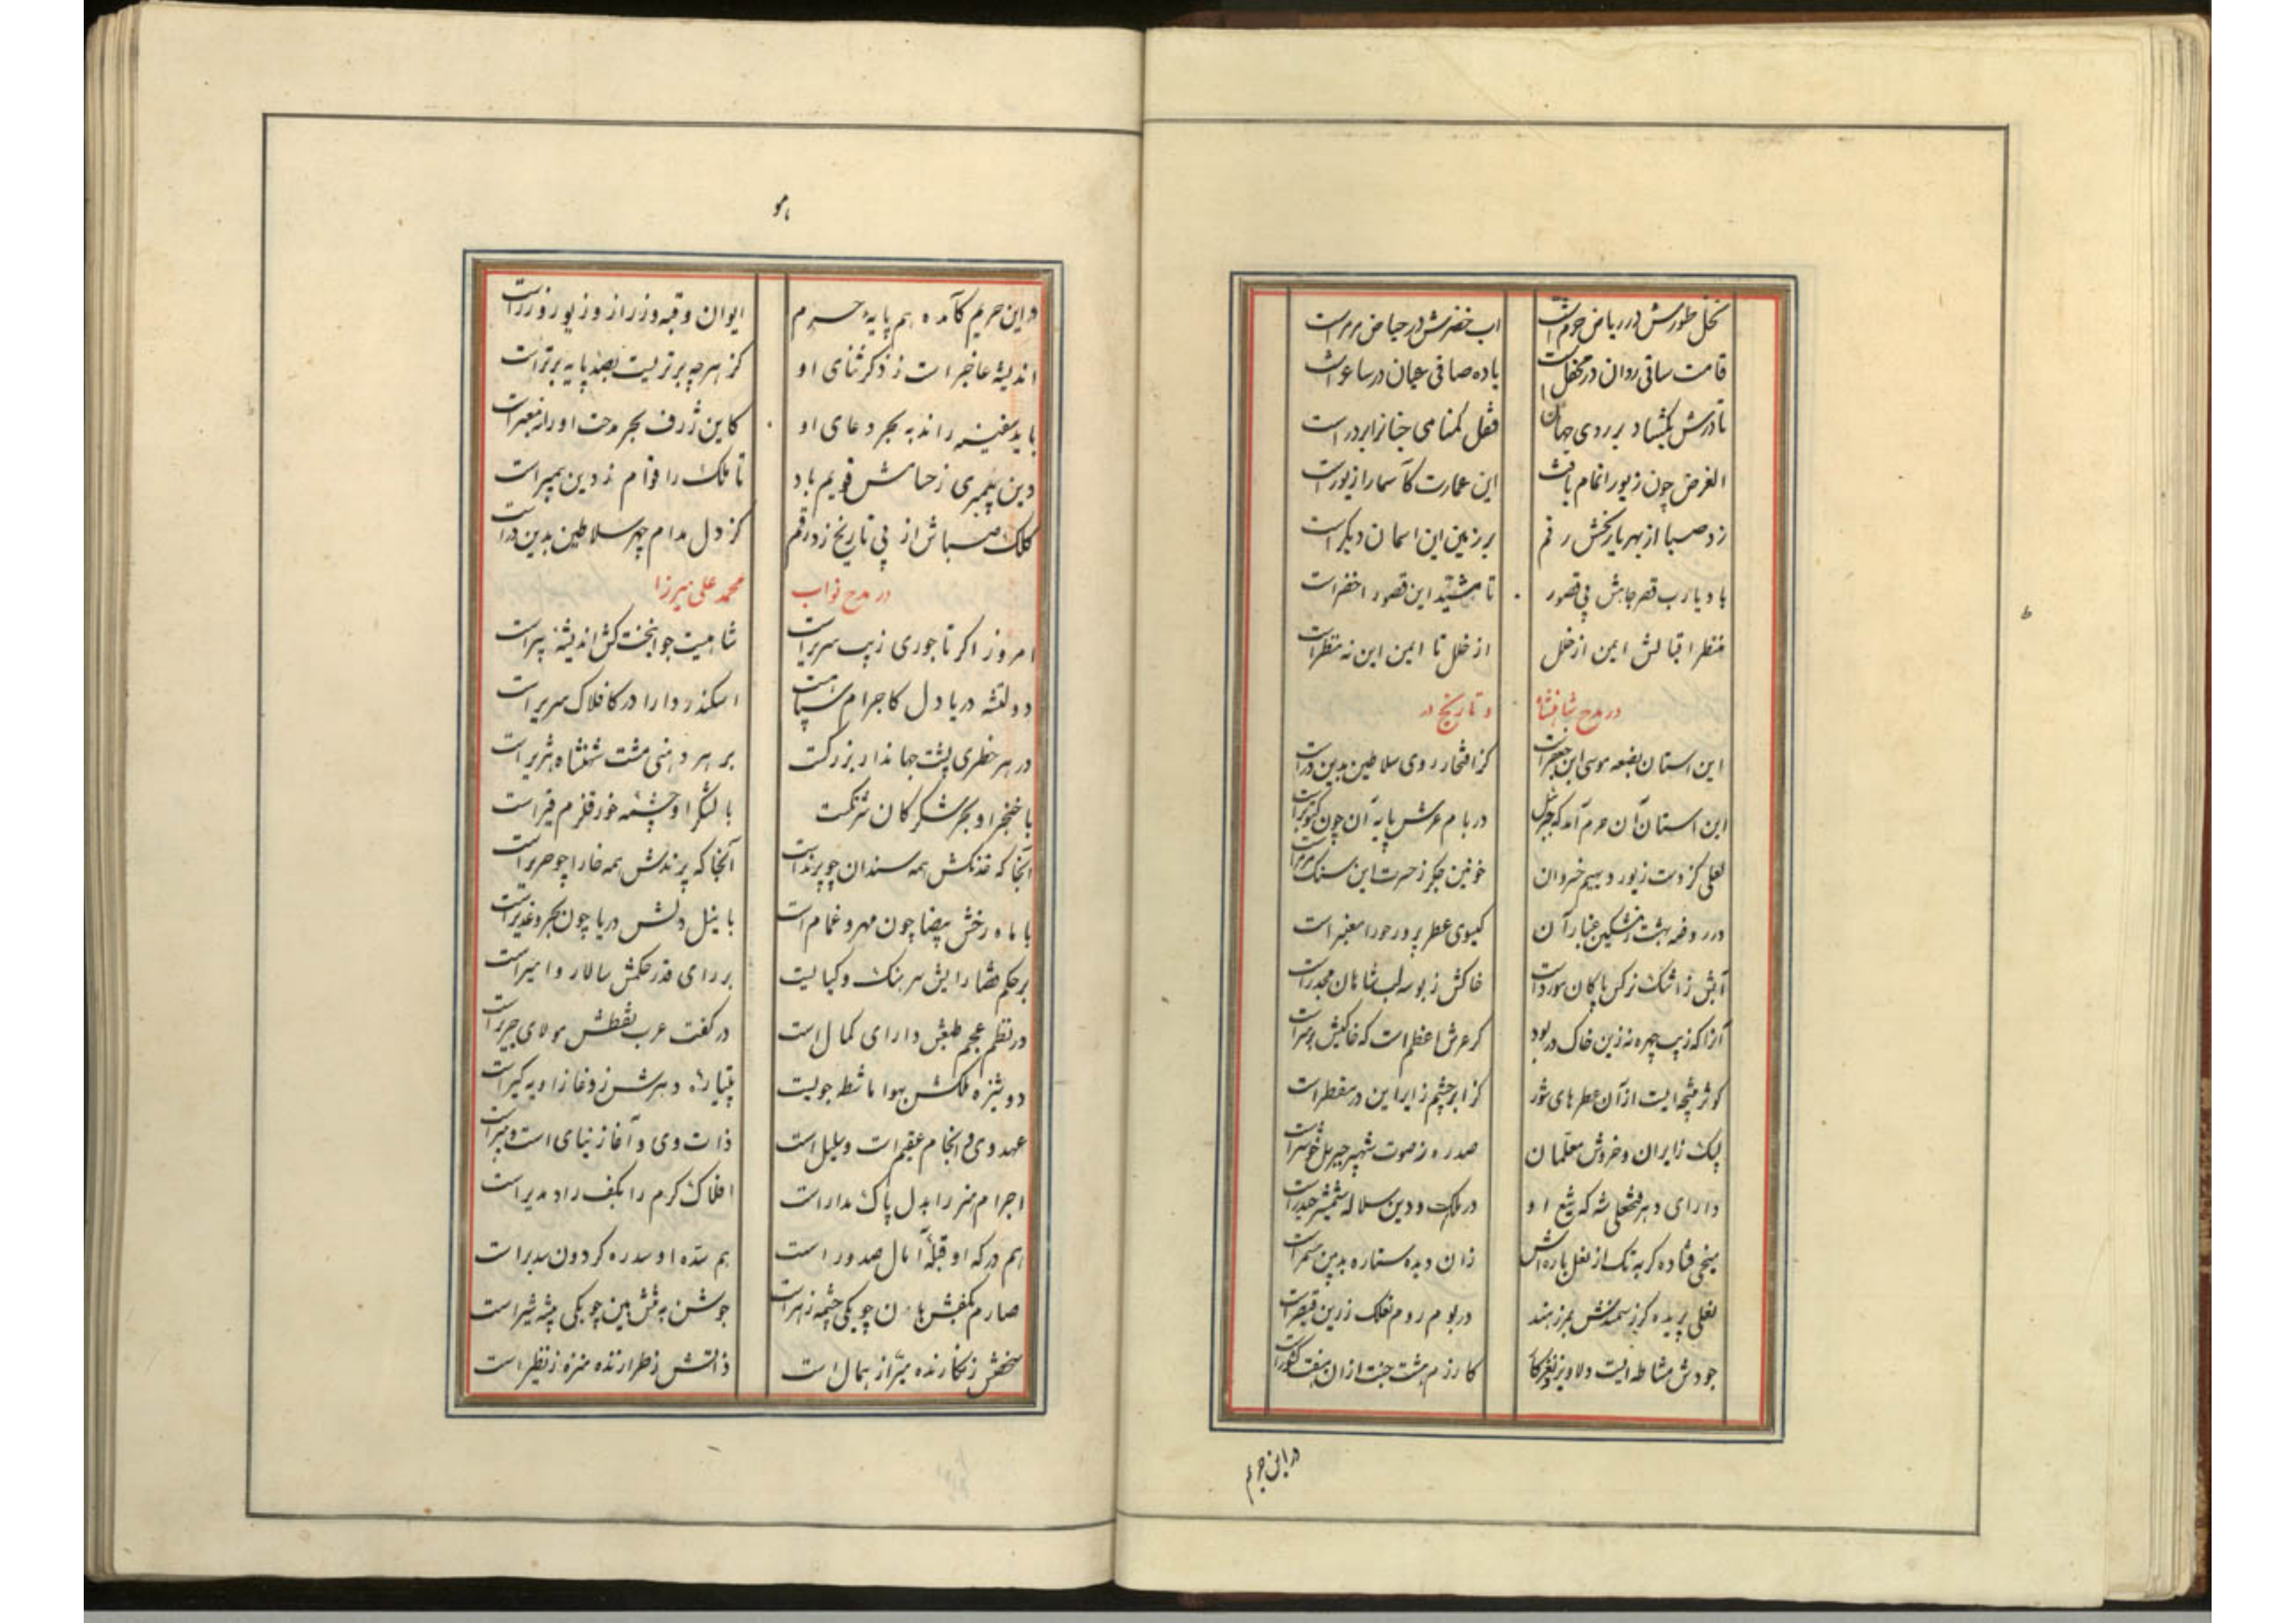 نخل طورش در ریاض خرم است
اب خضرش در حیاض مرمر است
قامت ساقی روان در محفل است
باده صافی عیان در ساغر است
تا درش بگشاد بر روی جهان
قفل گمنامی جنانرا بر در است
الغرض چون زیور اتمام یافت
این عمارت کآسمارا زیور است
زد صبا از بهر تاریخش رقم
بر زمین این اسمان دیگر است
باد یا رب قصر جاهش بی قصور
تا مشید این قصور اخضر است
منظر اقبالش ایمن از خلل
از خلل تا ایمن این نه منظر است
در مدح شاهنشاه
و تاریخ در
این استان بضعه موسی ابن جعفر است
کز افتخار روی سلاطین بدین در است
این استان آن حرم آمد که جبرئیل
در بام عرش پایه آن چون کبوتر است
لعلی کز وست زیور دیهیم خسروان
خونین جگر ز حسرت این سنک مرمر است
در روضه بهشت ز مشکین غبار آن
کیسوی عطر پرور حورا معنبر است
آبش ز اشک نرکس پاکان مورد است
خاکش ز بوسه لب شاهان مجدر است
آنرا که زیب چهره نه زین خاک در بود
کر عرش اعظم است که خاکیش بر سر است
کوثر رشحه ایست از آن عطرهای شور
کز ابر چشم زایر این در مقطر است
پیک زایران و خروش معلمان
صدره ز صوت شهپر جبریل خوشتر است
دارای دهر فتحعلی شه که تیغ او
در ملک و دین سلاله شمشیر حیدر است
میخی فتاده کر به تک از نعل باره اش
زان دیده ستاره بدین مسمر است
لعلی پریده کر ز سمندش بمرز هند
در بوم روم نعلک زرین قیصر است
جودش مشاطه ایست دلاویز
کارزم هشت جنت از آن هفت کشور است
در این حریم
در این حریم کآمده هم پایه حرم
ایوان و قبه و زر از و زیور و زر است
اندیشه عاجز است ز ذکر ثنای او
کز هرچه برتریست بصد پایه برتر است
باید سفینه راند به بحر دعای او
کاین ژرف بحر مدحت او را نه معبر است
دین پیمبری ز حسامش قویم باد
تا ملک را قوام ز دین پیمبر است
کلک صباش از پی تاریخ زد رقم
کز دل مدام چهر سلاطین بدین در است
در مدح نواب
محمد علی میرزا
امروز اکر تاجوری زیب سریر است
شاهیست جوانبخت کش اندیشه پیر است
دولتشه دریا دل کاجرام سپاهست
اسکندر دارا در کافلاک سریر است
در هر خطری پشت جهاندار بزرکست
بر هر دمنی مشت شهنشاه هژیر است
با خنجر او بحر شکر کان شترکست
با لشکر او چشمه خور قلزم قیر است
آنجا که خدنکش همه سندان چو پرند است
آنجا که پرندش همه خارا چو حریر است
با ماه رخش بیضا چون مهر و غمام است
با نیل دلش دریا چون بحر و غدیر است
بر حکم قضا رایش سرهنک و کیالیست
بر رای قدر حکمش سالار و امیر است
در نظم عجم طبعش دارای کمال است
در گفت عرب نطقش مولای جریر است
دوشیزه ملکش بهوا ماشطه جویست
پتیاره دهرش ز دغا زاویه کیر است
عهد وی و انجام عقیم است و بلیل است
ذات وی و آغاز نیای است و مبر است
اجرام هنر را بدل پاک مدار است
افلاک کرم را بکف راد مدیر است
هم درکه او قبله آمال صدور است
هم سده او سدره کردون سدیر است
صارم بکفش هان چو یکی چشمه زهر است
جوشن به تنش بین چو یکی بیشه شیر است
سخنش ز نکارنده مبرا ز همال است
ذاتش ز طرازنده منزه ز نظیر است